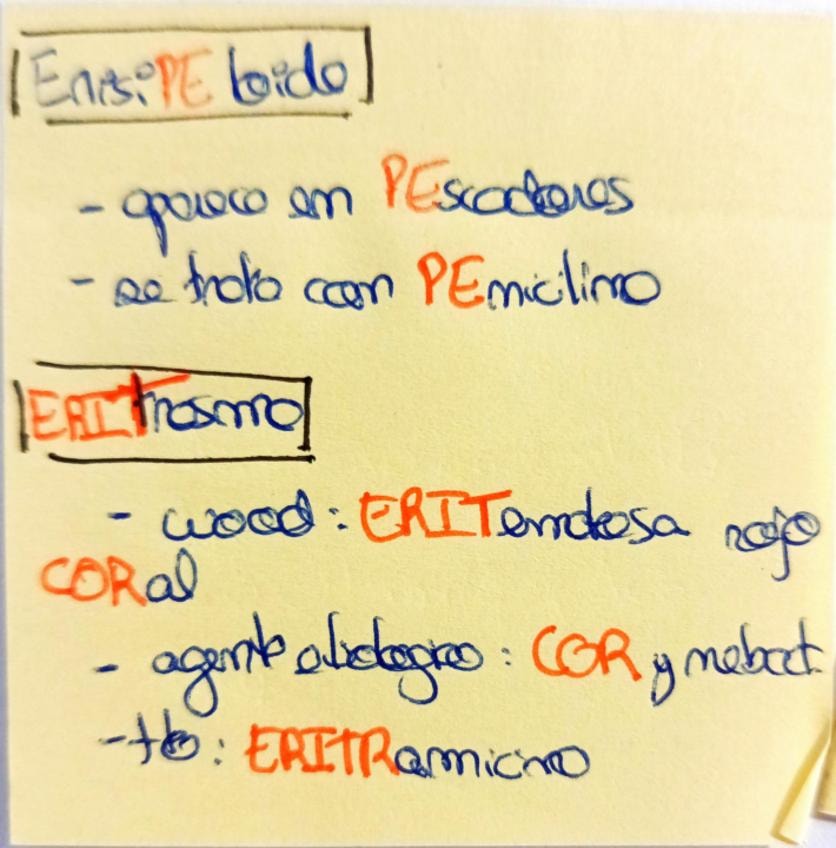 ErisiPEloide
- aparece en PEscaderos
- se trata con PEnicilina
ERITrasma
- wood: ERITematosa rojo
CORal
- agente etiologico: CORynebact.
- tto: ERITRomicina